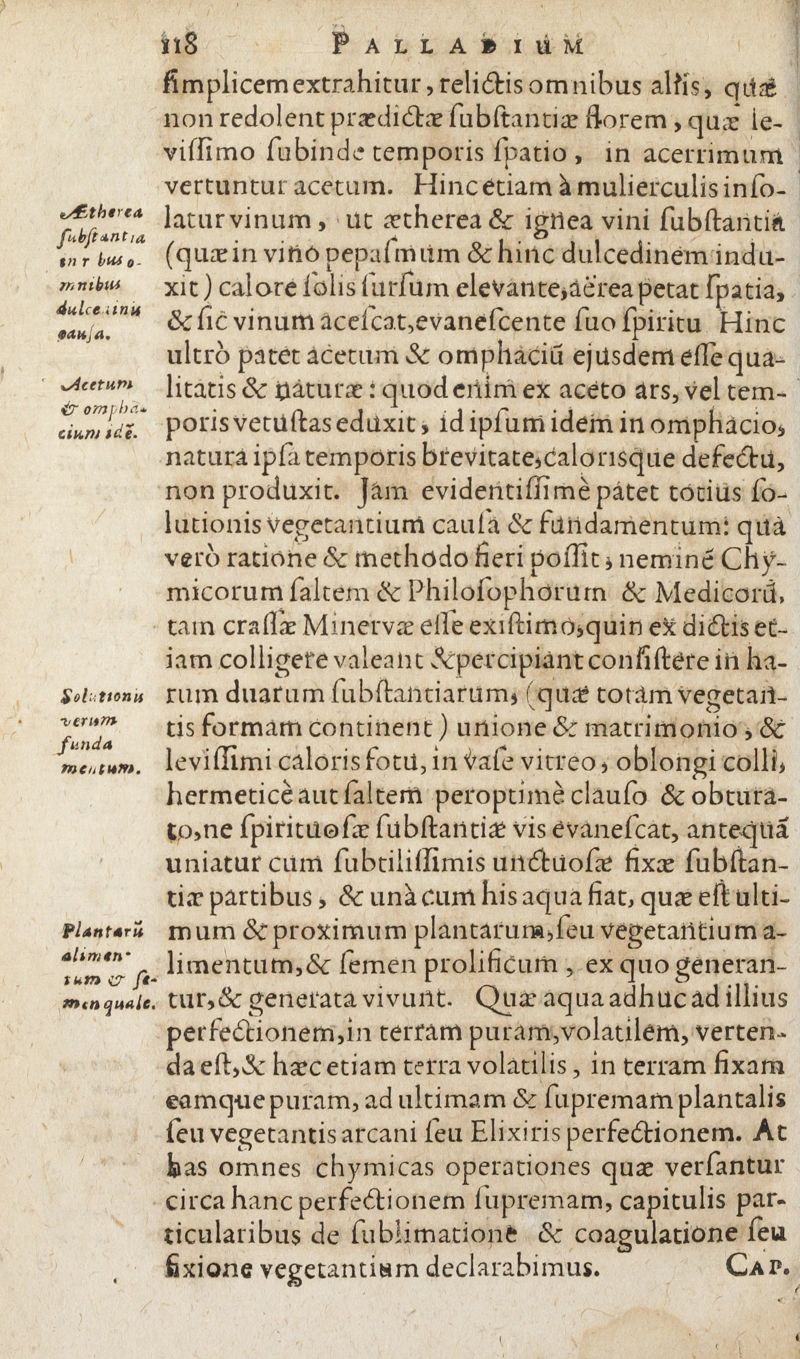 118 PALLADIUM
ſimplicem extrahitur, relictis omnibus aliis, quæ
non redolent prædictæ ſubſtantiæ florem, quæ le-
viſſimo ſubinde temporis ſpatio, in acerrimum
vertuntur acetum. Hinc etiam à mulierculis inſo-
latur vinum, ut ætherea & ignea vini ſubſtantia
(quæ in vino pepaſmum & hinc dulcedinem indu-
xit) calore ſolis ſurſum elevante, aërea petat ſpatia,
& ſic vinum aceſcat, evaneſcente ſuo ſpiritu Hinc
ultrò patet acetum & omphaciū ejusdem eſſe qua-
litatis & naturæ: quod enim ex aceto ars, vel tem-
poris vetuſtas eduxit, id ipſum idem in omphacio,
natura ipſa temporis brevitate, calorisque defectu,
non produxit. Jam evidentiſſimè patet totius ſo-
lutionis vegetantium cauſa & fundamentum: qua
verò ratione & methodo fieri poſſit, neminé Chy-
micorum ſaltem & Philoſophorum & Medicorū,
tam craſſæ Minervæ eſſe exiſtimo, quin ex dictis et-
iam colligere valeant & percipiant conſiſtere in ha-
rum duarum ſubſtantiarum, (quæ totam vegetan-
tis formam continent) unione & matrimonio, &
leviſſimi caloris fotu, in vaſe vitreo, oblongi colli,
hermeticè aut ſaltem peroptimè clauſo & obtura-
to, ne ſpirituoſæ ſubſtantiæ vis evaneſcat, antequā
uniatur cum ſubtiliſſimis unctuoſæ fixæ ſubſtan-
tiæ partibus, & unà cum his aqua fiat, quæ eſt ulti-
mum & proximum plantarum, ſeu vegetantium a-
limentum, & ſemen prolificum, ex quo generan-
tur, & generata vivunt. Quæ aqua adhuc ad illius
perfectionem, in terram puram, volatilem, verten-
da eſt, & hæc etiam terra volatilis, in terram fixam
eamque puram, ad ultimam & ſupremam plantalis
ſeu vegetantis arcani ſeu Elixiris perfectionem. At
has omnes chymicas operationes quæ verſantur
circa hanc perfectionem ſupremam, capitulis par-
ticularibus de ſublimatione & coagulatione ſeu
fixione vegetantium declarabimus. CAP.
Ætherea
ſubſtantia
in r bus o-
mnibus
dulce inis
cauſa.
Acetum
& ompha-
cium idē.
Solutionis
verum
funda
mentum.
Plantarū
alimen-
tum & ſe-
men quale.